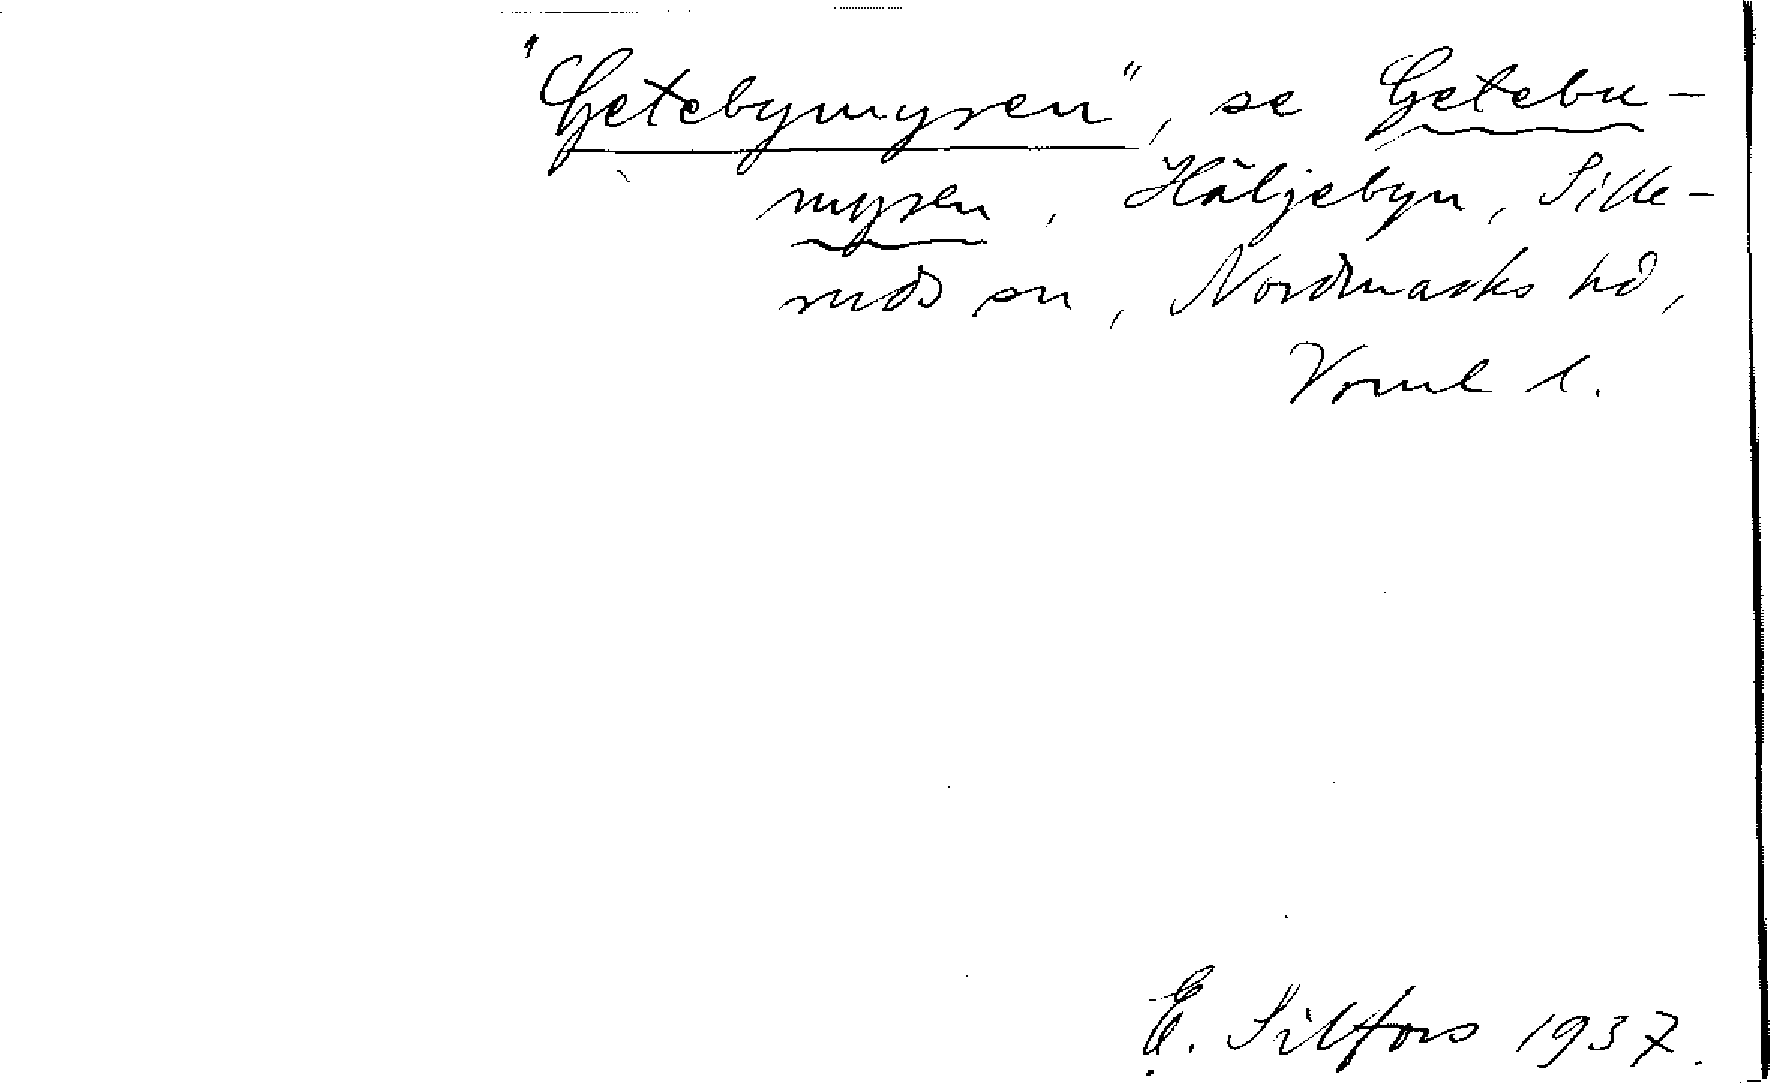 "Getebymyren", se Getebu-
myren, Häljebyn, Sille-
ruds sn, Nordmarks hd,
Vrml l.
E. Silfors 1937.